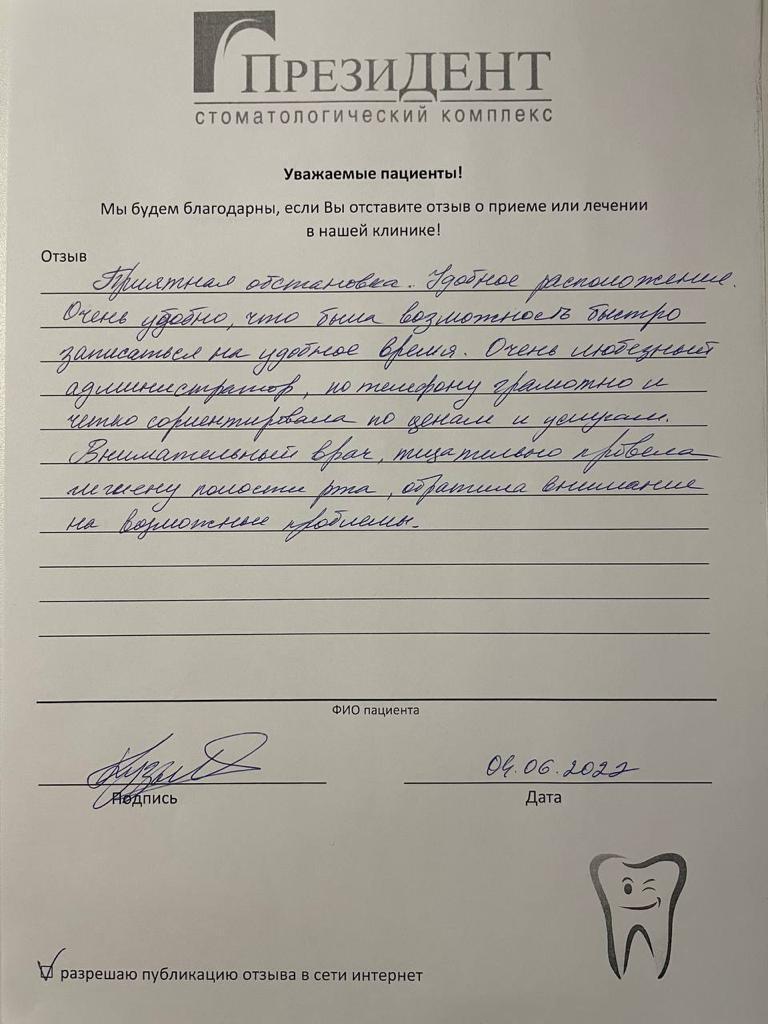 ПрезиДЕНТ
стоматологический комплекс
Уважаемые пациенты!
Мы будем благодарны, если Вы отставите отзыв о приеме или лечении
в нашей клинике!
Отзыв
Приятная обстановка. Удобное расположение.
Очень удобно, что была возможность быстро
записаться на удобное время. Очень любезный
администратор, по телефону грамотно и
четко сориентировала по ценам и услугам.
Внимательный врач, тщательно провела
гигиену полости рта, обратила внимание
на возможные проблемы.
ФИО пациента
04.06.2022
Подпись
Дата
разрешаю публикацию отзыва в сети интернет